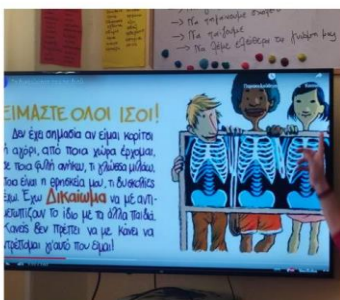 → Να παίζουμε
→ Να λέμε ελεύθερα τη γνώμη μας
ΕΙΜΑΣΤΕ ΟΛΟΙ ΙΣΟΙ!
Δεν έχει σημασία αν είμαι κορίτσι
ή αγόρι, από ποια χώρα έρχομαι,
σε ποια φυλή ανήκω, τι γλώσσα μιλάω,
ποια είναι η θρησκεία μου, τι δυσκολίες
έχω. Έχω Δικαίωμα να με αντι-
μετωπίζουν το ίδιο με τα άλλα παιδιά.
Κανείς δεν πρέπει να με κάνει να
ντρέπομαι γι'αυτό που είμαι!